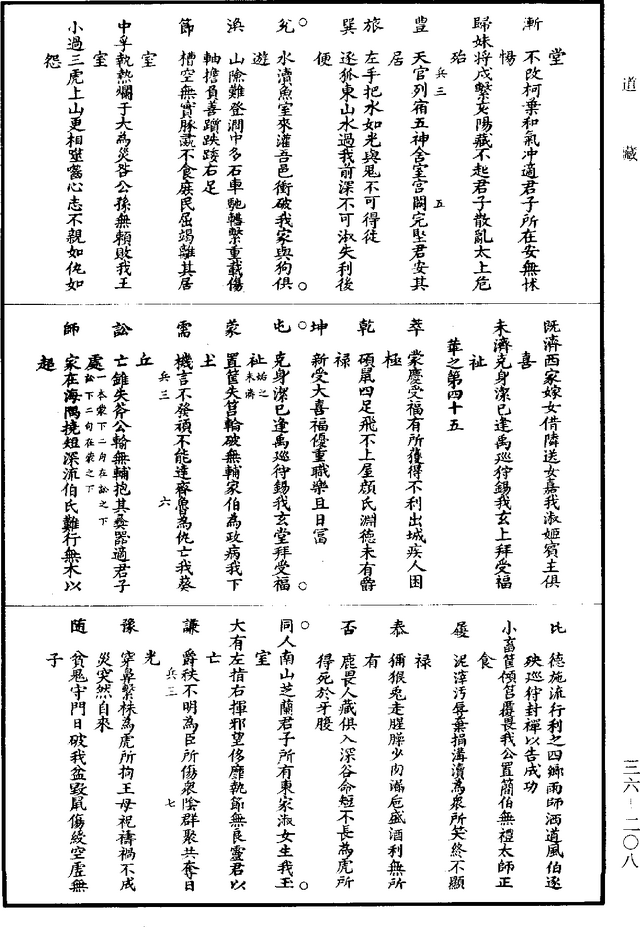 道藏
堂
漸　不改柯葉和氣冲適君子所在安無怵
惕
歸妹將戍繫女陽藏不起君子散亂太上危
殆
豐　天官列宿五神舍室宮闕完堅君安其
居
旅　左手把水如光與鬼不可得徒
巽　逐狐東山水過我前深不可淑失利後
便
兌　水瀆魚室來灌吾邑衝破我家與狗俱
遊
渙　山險難登澗中多石車馳轊擊重載傷
軸擔負善躓跌踒右足
節　槽空無實豚彘不食庶民屈竭離其居
室
中孚執熱爛手大為災咎公孫無賴敗我王
室
小過三虎上山更相喧嚾心志不親如仇如
怨
兵三　五
既濟西家嫁女借隣送女嘉我淑姬賓主俱
喜
未濟克身潔已逢禹巡狩錫我玄上拜受福
祉
萃之第四十五
萃　蒙慶受福有所獲得不利出城疾人困
極
乾　碩鼠四足飛不上屋顏氏淵德未有爵
祿
坤　新受大喜福優重職樂且日富
屯　克身潔已逢禹巡狩錫我玄堂拜受福
祉姤之未濟
蒙　置筐失筥輪破無輔家伯為政病我下
土
需　機言不發頑不能達齊魯為仇亡我葵
丘
訟　亡錐失斧公輸無輔抱其彝器適君子
處一本蒙下二句在訟之下訟下二句在蒙之下
師　家在海隅撓短深流伯氏難行無木以
趨
兵三　六
比　德施流行利之四鄉雨師洒道風伯逐
殃巡狩封禪以告成功
小畜筐傾筥覆畏我公置簡伯無禮太師正
食
履　泥滓汚辱棄捐溝瀆為衆所笑終不顯
祿
泰　獮猴兎走腥臊少肉滿巵盛酒利無所
有
否　鹿畏人藏俱入深谷命短不長為虎所
得死於牙腹
同人南山芝蘭君子所有東家淑女生我玉
室
大有左指右揮邪望侈靡執節無良靈君以
亡
謙　爵秩不明為臣所傷衆陰群聚共奪日
光
豫　穿鼻繫株為虎所拘王母祝禱禍不成
災突然自來
隨　貧鬼守門日破我盆毀鼠傷綬空虛無
子
兵三　七
三六-二〇八